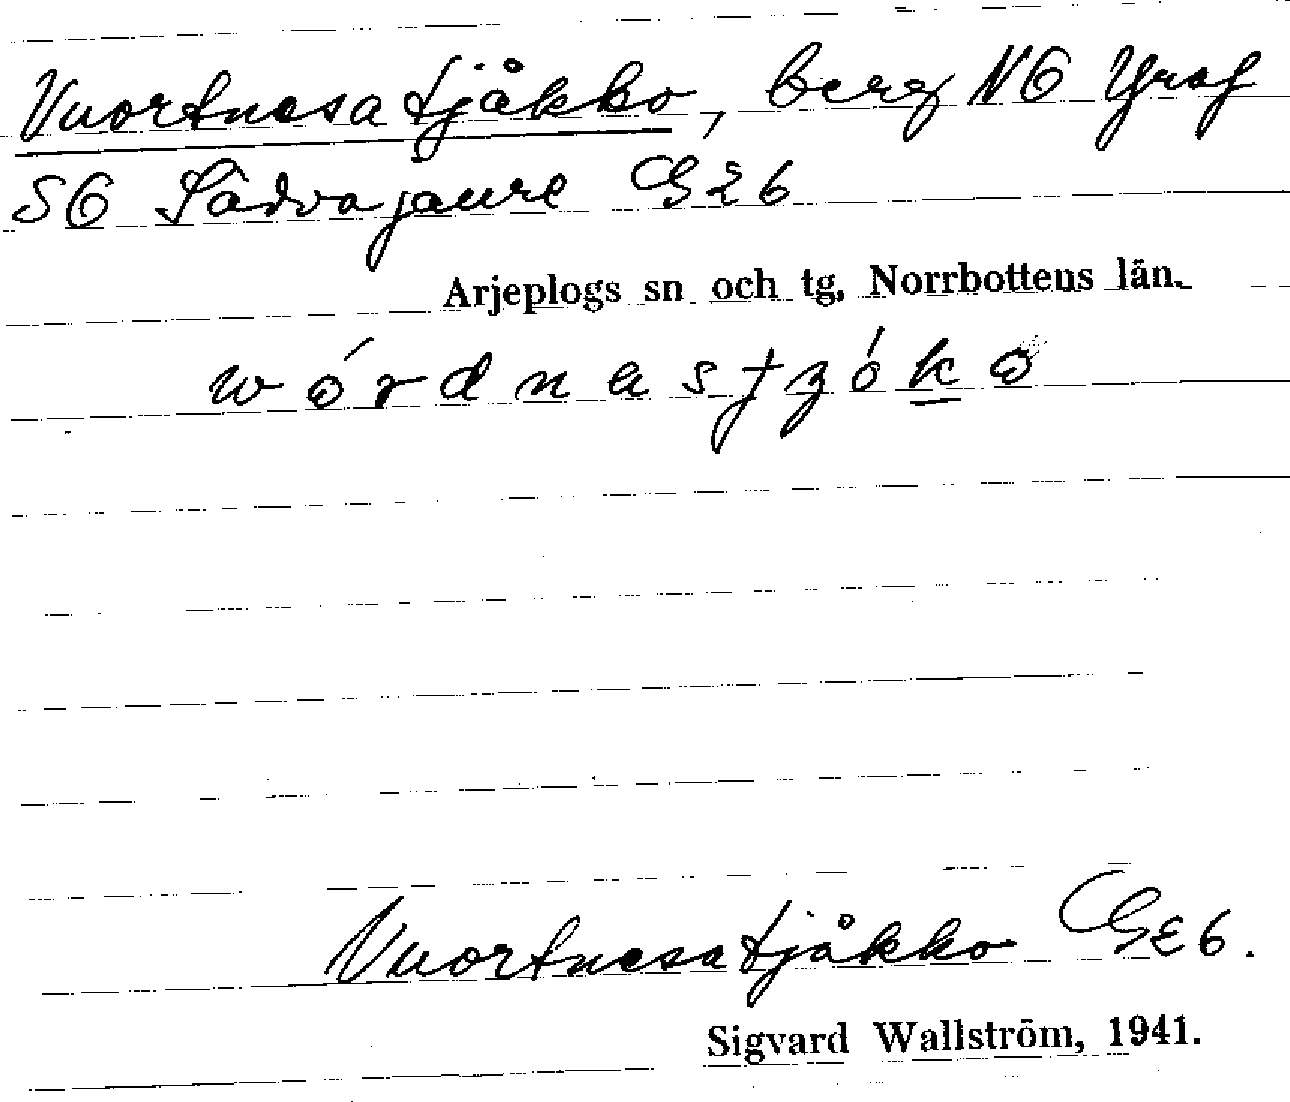 Vuortnesatjåkko, berg NO Yraf
SO Sädvajaure GΣ6
Arjeplogs sn och tg, Norrbottens län.
wórdnasɟʒóko
Vuortnesatjåkko GΣ6.
Sigvard Wallström, 1941.